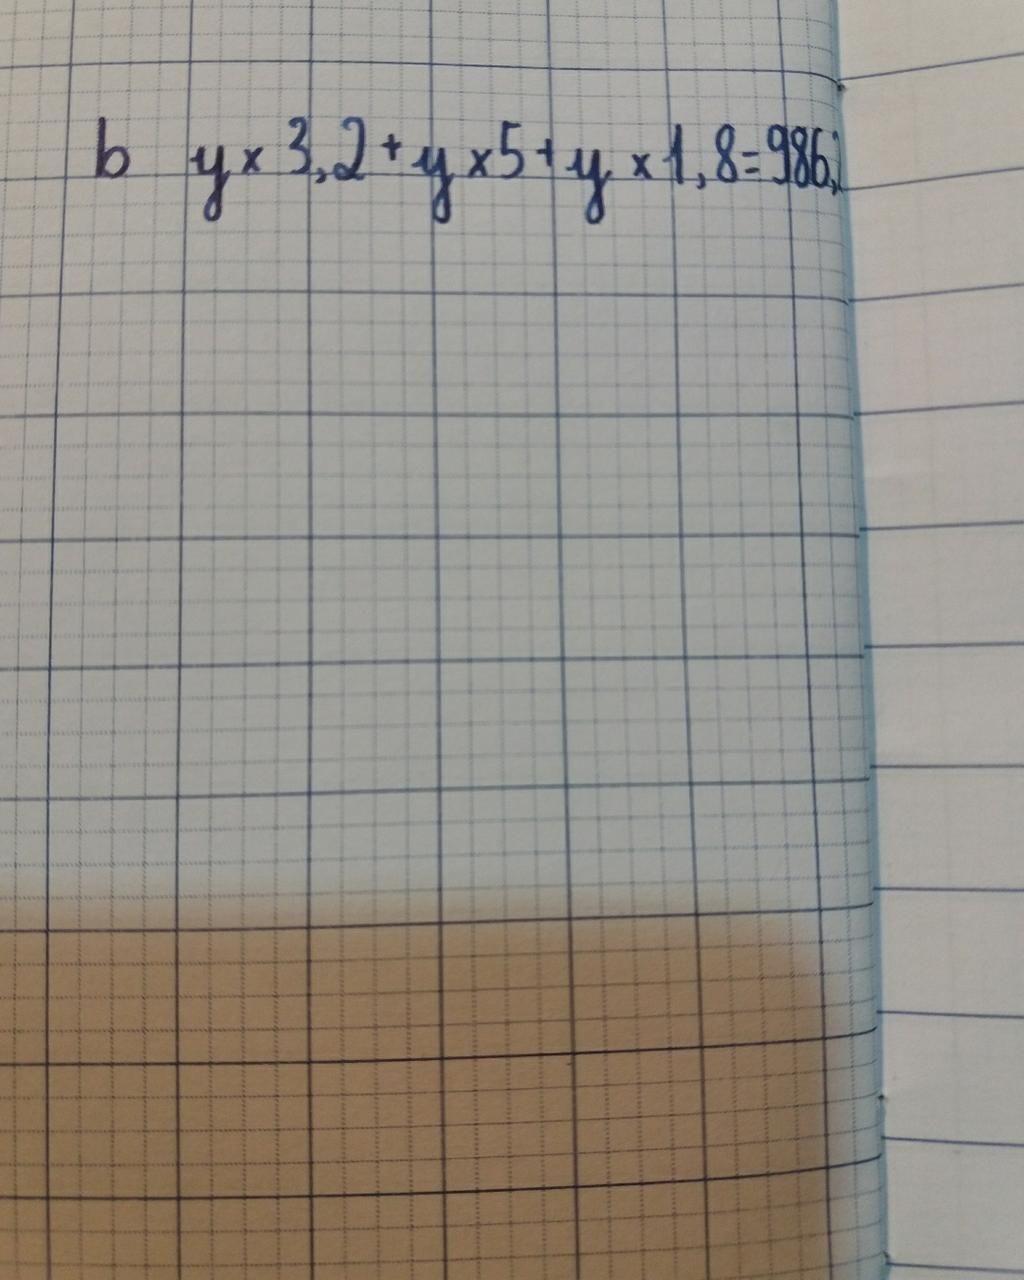 b y × 3,2 + y × 5 + y × 1,8 = 986,